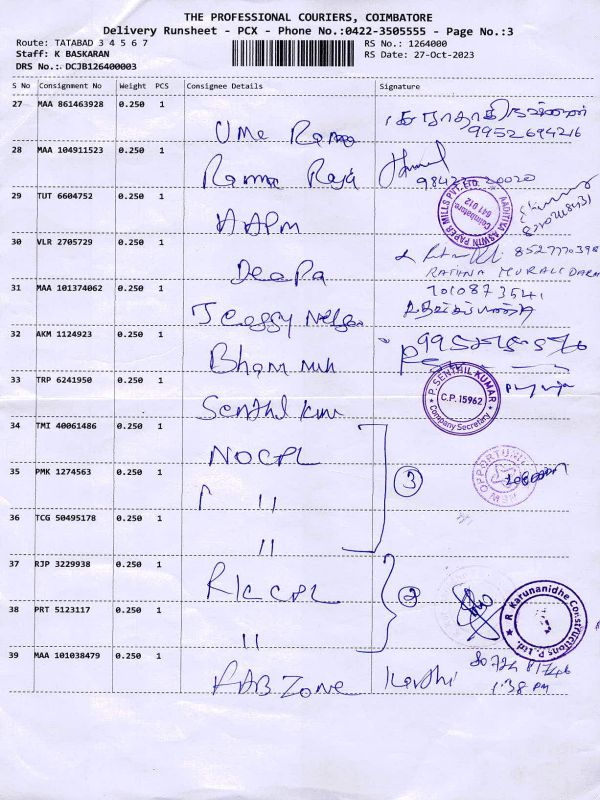 THE PROFESSIONAL COURIERS, COIMBATORE
Delivery Runsheet - PCX - Phone No.:0422-3505555 - Page No.:3
Route: TATABAD 3 4 5 6 7
RS No.: 1264000
Staff: K BASKARAN
RS Date: 27-Oct-2023
DRS No.: DCJB126400003
S No Consignment No Weight PCS Consignee Details Signature
27 MAA 861463928 0.250 1
Uma Rama 9952694216
28 MAA 104911523 0.250 1
Rama Raja
29 TUT 6604752 0.250 1
AAPM
AADITYA ASWIN PAPER MILLS PVT. LTD. Coimbatore. 641 012
30 VLR 2705729 0.250 1
Deepa 8527770398
RATHNA MURALIDARAN
31 MAA 101374062 0.250 1
7010873541
32 AKM 1124923 0.250 1
33 TRP 6241950 0.250 1
Senthil Kum
P. SENTHIL KUMAR C.P. 15962 Company Secretary
34 TMI 40061486 0.250 1
NOCPL
35 PMK 1274563 0.250 1
" 3
36 TCG 50495178 0.250 1
"
37 RJP 3229938 0.250 1
RKCCPL 2
38 PRT 5123117 0.250 1
"
R Karunanidhe Constructions P. Ltd.
39 MAA 101038479 0.250 1
FAB ZONE Karthi
1:38 PM